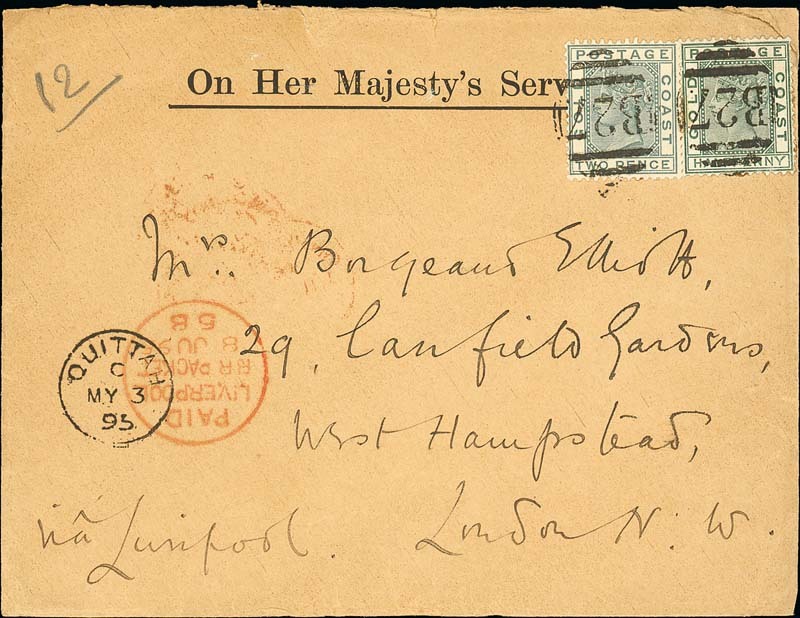 12
On Her Majesty's Serv
POSTAGE
GOLD
COAST
TWO PENCE
B27
POSTAGE
GOLD
COAST
H NNY
B27
Mrs. Borgeaud Elliott,
29, Canfield Gardens,
West Hampstead,
London N. W.
viâ Liverpool.
QUITTAH
C
MY 3
95
PAID
LIVERPOOL
BR PACKET
8 JU 9
5B